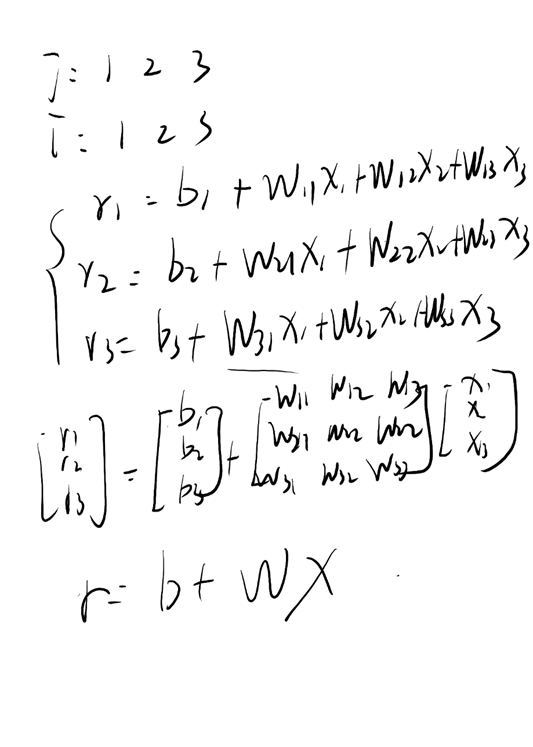 j: 1 2 3
i: 1 2 3
r1 = b1 + W11X1+W12X2+W13X3
r2 = b2 + W21X1 + W22X2+W23X3
r3= b3+ W31X1+W32X2+W33X3
[r1 r2 r3] = [b1 b2 b3] + [W11 W12 W13 W31 W32] [X1 X X3]
r= b+ WX